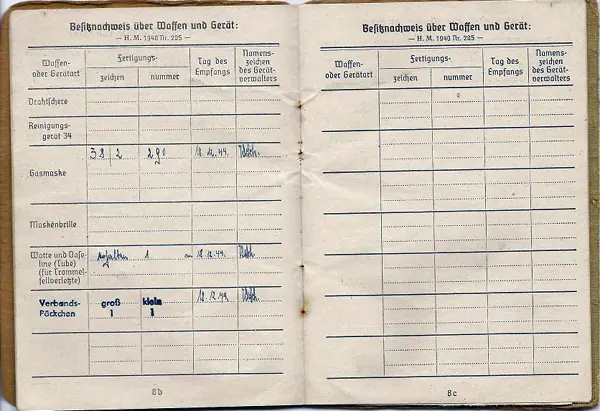 Besitznachweis über Waffen und Gerät:
— H. M. 1940 Nr. 205 —
Waffen-
oder Gerätart
Fertigungs-
zeichen
nummer
Tag des
Empfangs
Namens-
zeichen
des Gerät-
verwalters
Drahtschere
Reinigungs-
gerät 34
Gasmaske
3 8 2
12.12.44.
Maskenbrille
Watte und Vase-
line (Tube)
(für Trommel-
fellverletzte)
erhalten 1 am 12.12.44.
Verbands-
Päckchen
groß
1
klein
1
12.12.44.
8b
Besitznachweis über Waffen und Gerät:
— H. M. 1940 Nr. 205 —
Waffen-
oder Gerätart
Fertigungs-
zeichen
nummer
Tag des
Empfangs
Namens-
zeichen
des Gerät-
verwalters
8c